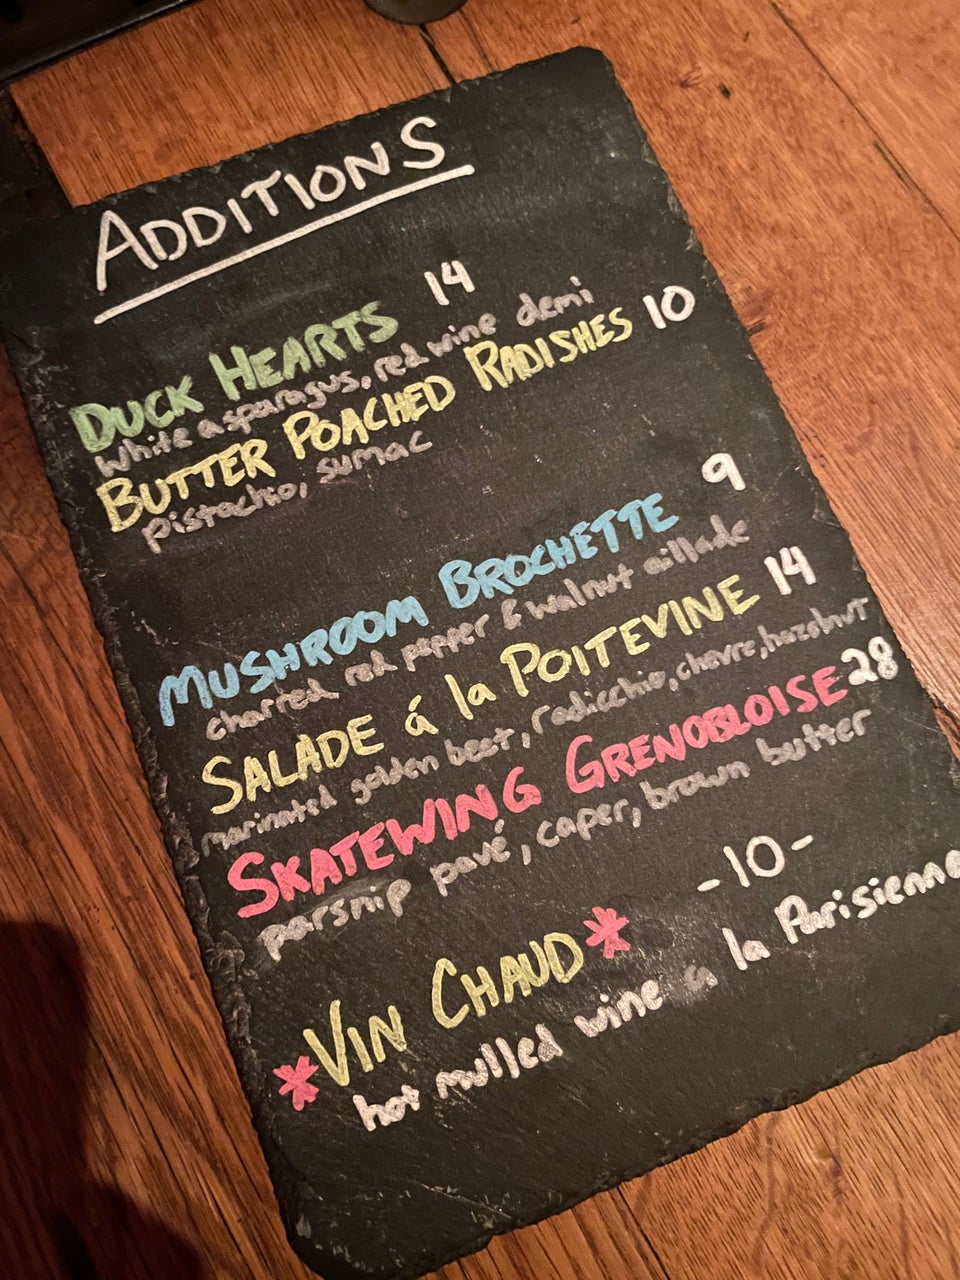 ADDITIONS
DUCK HEARTS 14
white asparagus, red wine demi
BUTTER POACHED RADISHES 10
pistachio, sumac
MUSHROOM BROCHETTE 9
charred red pepper & walnut aillade
SALADE á la POITEVINE 14
marinated golden beet, radicchio, chevre, hazelnut
SKATEWING GRENOBLOISE 28
parsnip pavé, caper, brown butter
*VIN CHAUD* -10-
hot mulled wine a la Parisienne